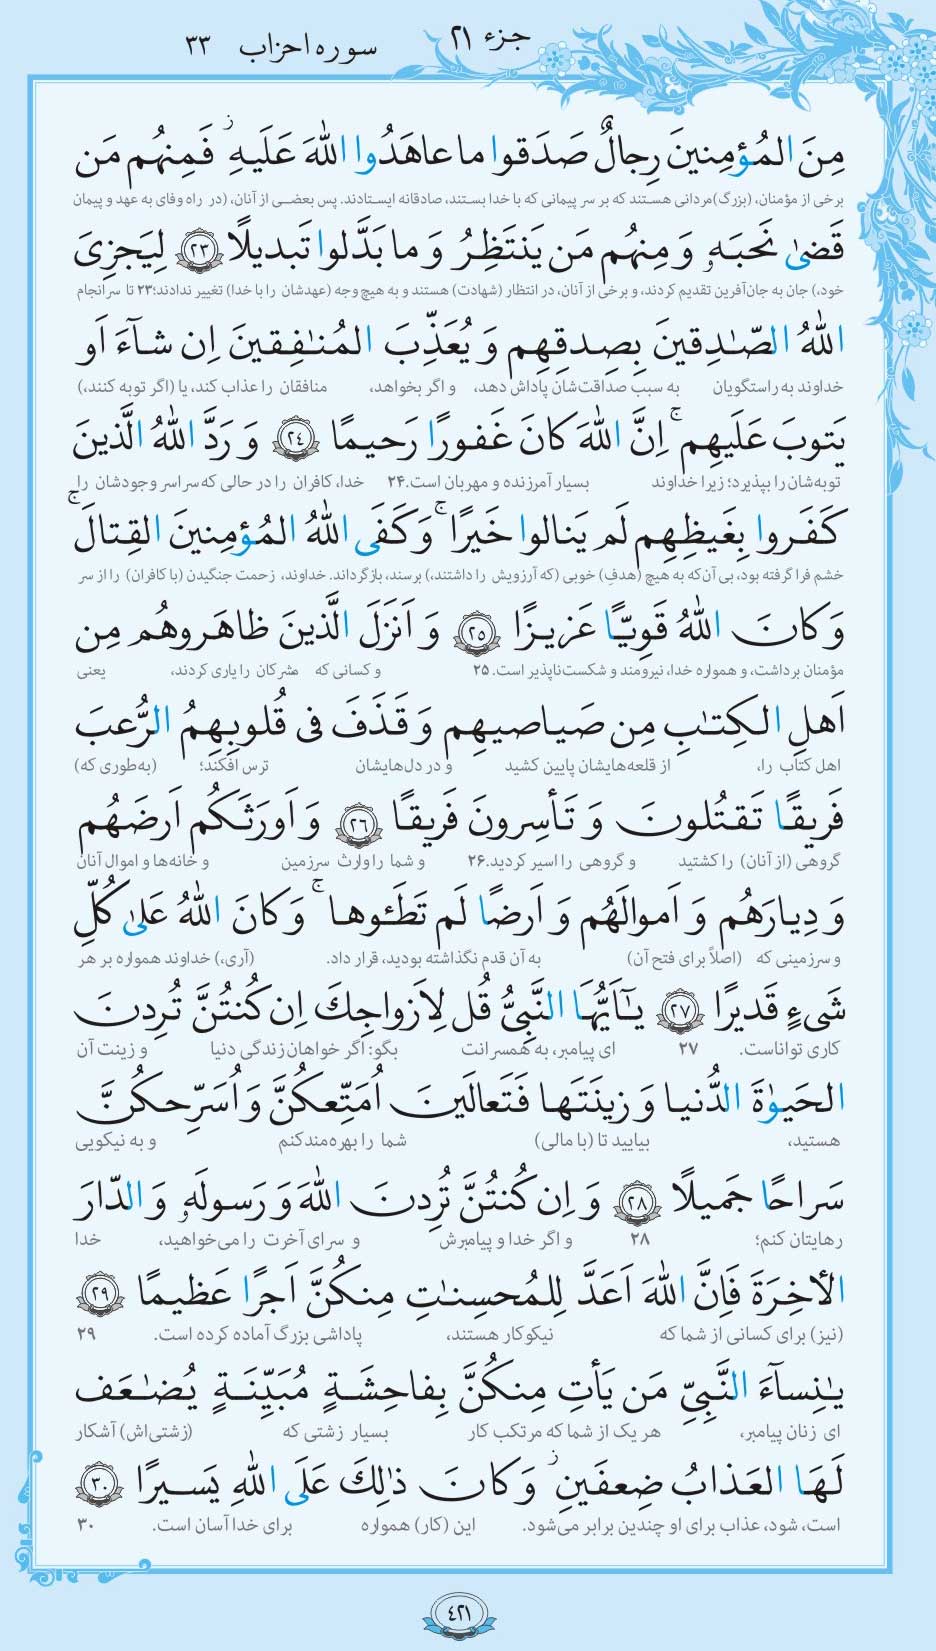 جزء ۲۱
سوره احزاب ۳۳
مِنَ المُؤمِنينَ رِجالٌ صَدَقوا ما عاهَدُوا اللّٰهَ عَلَيهِ ۖ فَمِنهُم مَن
برخی از مؤمنان، (بزرگ)مردانی هستند که بر سر پیمانی که با خدا بستند، صادقانه ایستادند. پس بعضی از آنان، (در راه وفای به عهد و پیمان
قَضىٰ نَحبَهٗ وَ مِنهُم مَن يَنتَظِرُ وَ ما بَدَّلوا تَبديلًا ﴿٢٣﴾ لِيَجزِىَ
خود،) جان به جان‌آفرین تقدیم کردند، و برخی از آنان، در انتظار (شهادت) هستند و به هیچ وجه (عهدشان را با خدا) تغییر ندادند؛۲۳ تا سرانجام
اللّٰهُ الصّٰدِقينَ بِصِدقِهِم وَ يُعَذِّبَ المُنٰفِقينَ اِن شآءَ اَو
خداوند به راستگویان به سبب صداقت‌شان پاداش دهد، و اگر بخواهد، منافقان را عذاب کند، یا (اگر توبه کنند،)
يَتوبَ عَلَيهِم ۚ اِنَّ اللّٰهَ كانَ غَفورًا رَحيمًا ﴿٢٤﴾ وَ رَدَّ اللّٰهُ الَّذينَ
توبه‌شان را بپذیرد؛ زیرا خداوند بسیار آمرزنده و مهربان است.۲۴ خدا، کافران را در حالی که سراسر وجودشان را
كَفَروا بِغَيظِهِم لَم يَنالوا خَيرًا ۚ وَ كَفَى اللّٰهُ المُؤمِنينَ القِتالَ ۚ
خشم فرا گرفته بود، بی آن‌که به هیچ (هدفِ) خوبی (که آرزویش را داشتند،) برسند، بازگرداند. خداوند، زحمت جنگیدن (با کافران) را از سر
وَ كانَ اللّٰهُ قَوِيًّا عَزيزًا ﴿٢٥﴾ وَ اَنزَلَ الَّذينَ ظاهَروهُم مِن
مؤمنان برداشت، و همواره خدا، نیرومند و شکست‌ناپذیر است.۲۵ و کسانی که مشرکان را یاری کردند، یعنی
اَهلِ الكِتٰبِ مِن صَياصيهِم وَ قَذَفَ فى قُلوبِهِمُ الرُّعبَ
اهل کتاب را، از قلعه‌هایشان پایین کشید و در دل‌هایشان ترس افکند؛ (به‌طوری که)
فَريقًا تَقتُلونَ وَ تَأسِرونَ فَريقًا ﴿٢٦﴾ وَ اَورَثَكُم اَرضَهُم
گروهی (از آنان) را کشتید و گروهی را اسیر کردید.۲۶ و شما را وارث سرزمین و خانه‌ها و اموال آنان
وَ دِيارَهُم وَ اَموالَهُم وَ اَرضًا لَم تَطَئوها ۚ وَ كانَ اللّٰهُ عَلىٰ كُلِّ
و سرزمینی که (اصلاً برای فتح آن) به آن قدم نگذاشته بودید، قرار داد. (آری،) خداوند همواره بر هر
شَىءٍ قَديرًا ﴿٢٧﴾ يٰٓاَيُّهَا النَّبِىُّ قُل لِاَزواجِكَ اِن كُنتُنَّ تُرِدنَ
کاری تواناست. ۲۷ ای پیامبر، به همسرانت بگو: اگر خواهان زندگی دنیا و زینت آن
الحَيوٰةَ الدُّنيا وَ زينَتَها فَتَعالَينَ اُمَتِّعكُنَّ وَ اُسَرِّحكُنَّ
هستید، بیایید تا (با مالی) شما را بهره‌مند کنم و به نیکویی
سَراحًا جَميلًا ﴿٢٨﴾ وَ اِن كُنتُنَّ تُرِدنَ اللّٰهَ وَ رَسولَهٗ وَ الدّارَ
رهایتان کنم؛ ۲۸ و اگر خدا و پیامبرش و سرای آخرت را می‌خواهید، خدا
الأخِرَةَ فَاِنَّ اللّٰهَ اَعَدَّ لِلمُحسِنٰتِ مِنكُنَّ اَجرًا عَظيمًا ﴿٢٩﴾
(نیز) برای کسانی از شما که نیکوکار هستند، پاداشی بزرگ آماده کرده است. ۲۹
يٰنِسآءَ النَّبِىِّ مَن يَأتِ مِنكُنَّ بِفاحِشَةٍ مُبَيِّنَةٍ يُضٰعَف
ای زنان پیامبر، هر یک از شما که مرتکب کار بسیار زشتی که (زشتی‌اش) آشکار
لَهَا العَذابُ ضِعفَينِ ۖ وَ كانَ ذٰلِكَ عَلَى اللّٰهِ يَسيرًا ﴿٣٠﴾
است، شود، عذاب برای او چندین برابر می‌شود. این (کار) همواره برای خدا آسان است. ۳۰
۴۲۱